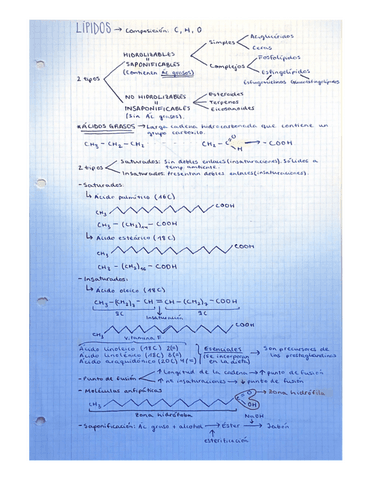 LÍPIDOS → Composición: C, H, O
2 tipos
HIDROLIZABLES = SAPONIFICABLES (Contienen Ac grasos)
Simples
Acilglicéridos
Ceras
Complejos
Fosfolípidos
Esfingolípidos
NO HIDROLIZABLES = INSAPONIFICABLES (Sin Ac grasos)
Esteroides
Terpenos
Eicosanoides
ÁCIDOS GRASOS → Larga cadena hidrocarbonada que contiene un
grupo carboxilo.
CH3 - CH2 - CH2 - CH2 - C O OH → - COOH
2 tipos
Saturados: Sin dobles enlaces (insaturaciones). Sólidos a
temp ambiente.
Insaturados: Presentan dobles enlaces (insaturaciones).
- Saturados:
↳ Ácido palmítico (16C)
CH3 COOH
CH3 - (CH2)14 - COOH
↳ Ácido esteárico (18C)
CH3 COOH
CH3 - (CH2)16 - COOH
- Insaturados:
↳ Ácido oleico (18C)
CH3 - (CH2)7 - CH = CH - (CH2)7 - COOH
Insaturación
CH3 COOH
vitamina F
Ácido linoleico (18C)
Ácido linolénico (18C)
Ácido araquidónico (20C)
Esenciales
(Se incorporan en la dieta)
→ Son precursores de
las prostaglandinas
- Punto de fusión
↑ longitud de la cadena → ↑ punto de fusión
↑ nº insaturaciones → ↓ punto de fusión
- Moléculas antipáticas:
CH3 C O OH → Zona hidrófila
Zona hidrófoba
NaOH
- Saponificación: Ac graso + alcohol → éster → Jabón
esterificación